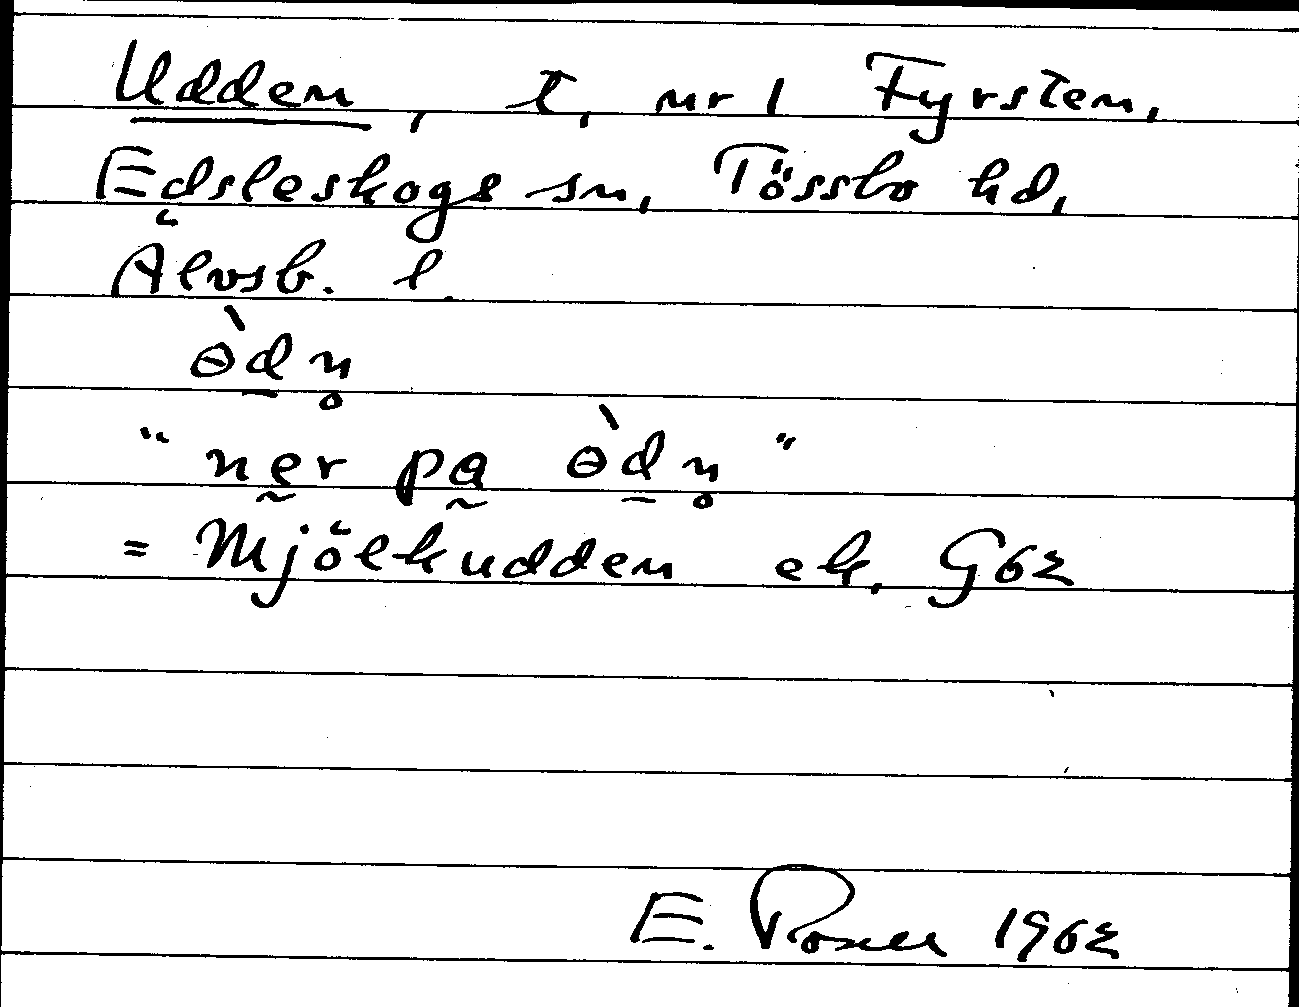 Udden, t, nr 1 Fyrsten,
Edsleskogs sn, Tössbo hd,
Älvsb. l.
ɵ̀d̠n̥
"nḛr pa̰ ɵ̀d̠n̥"
= Mjölkudden ek, G62
E. 1962